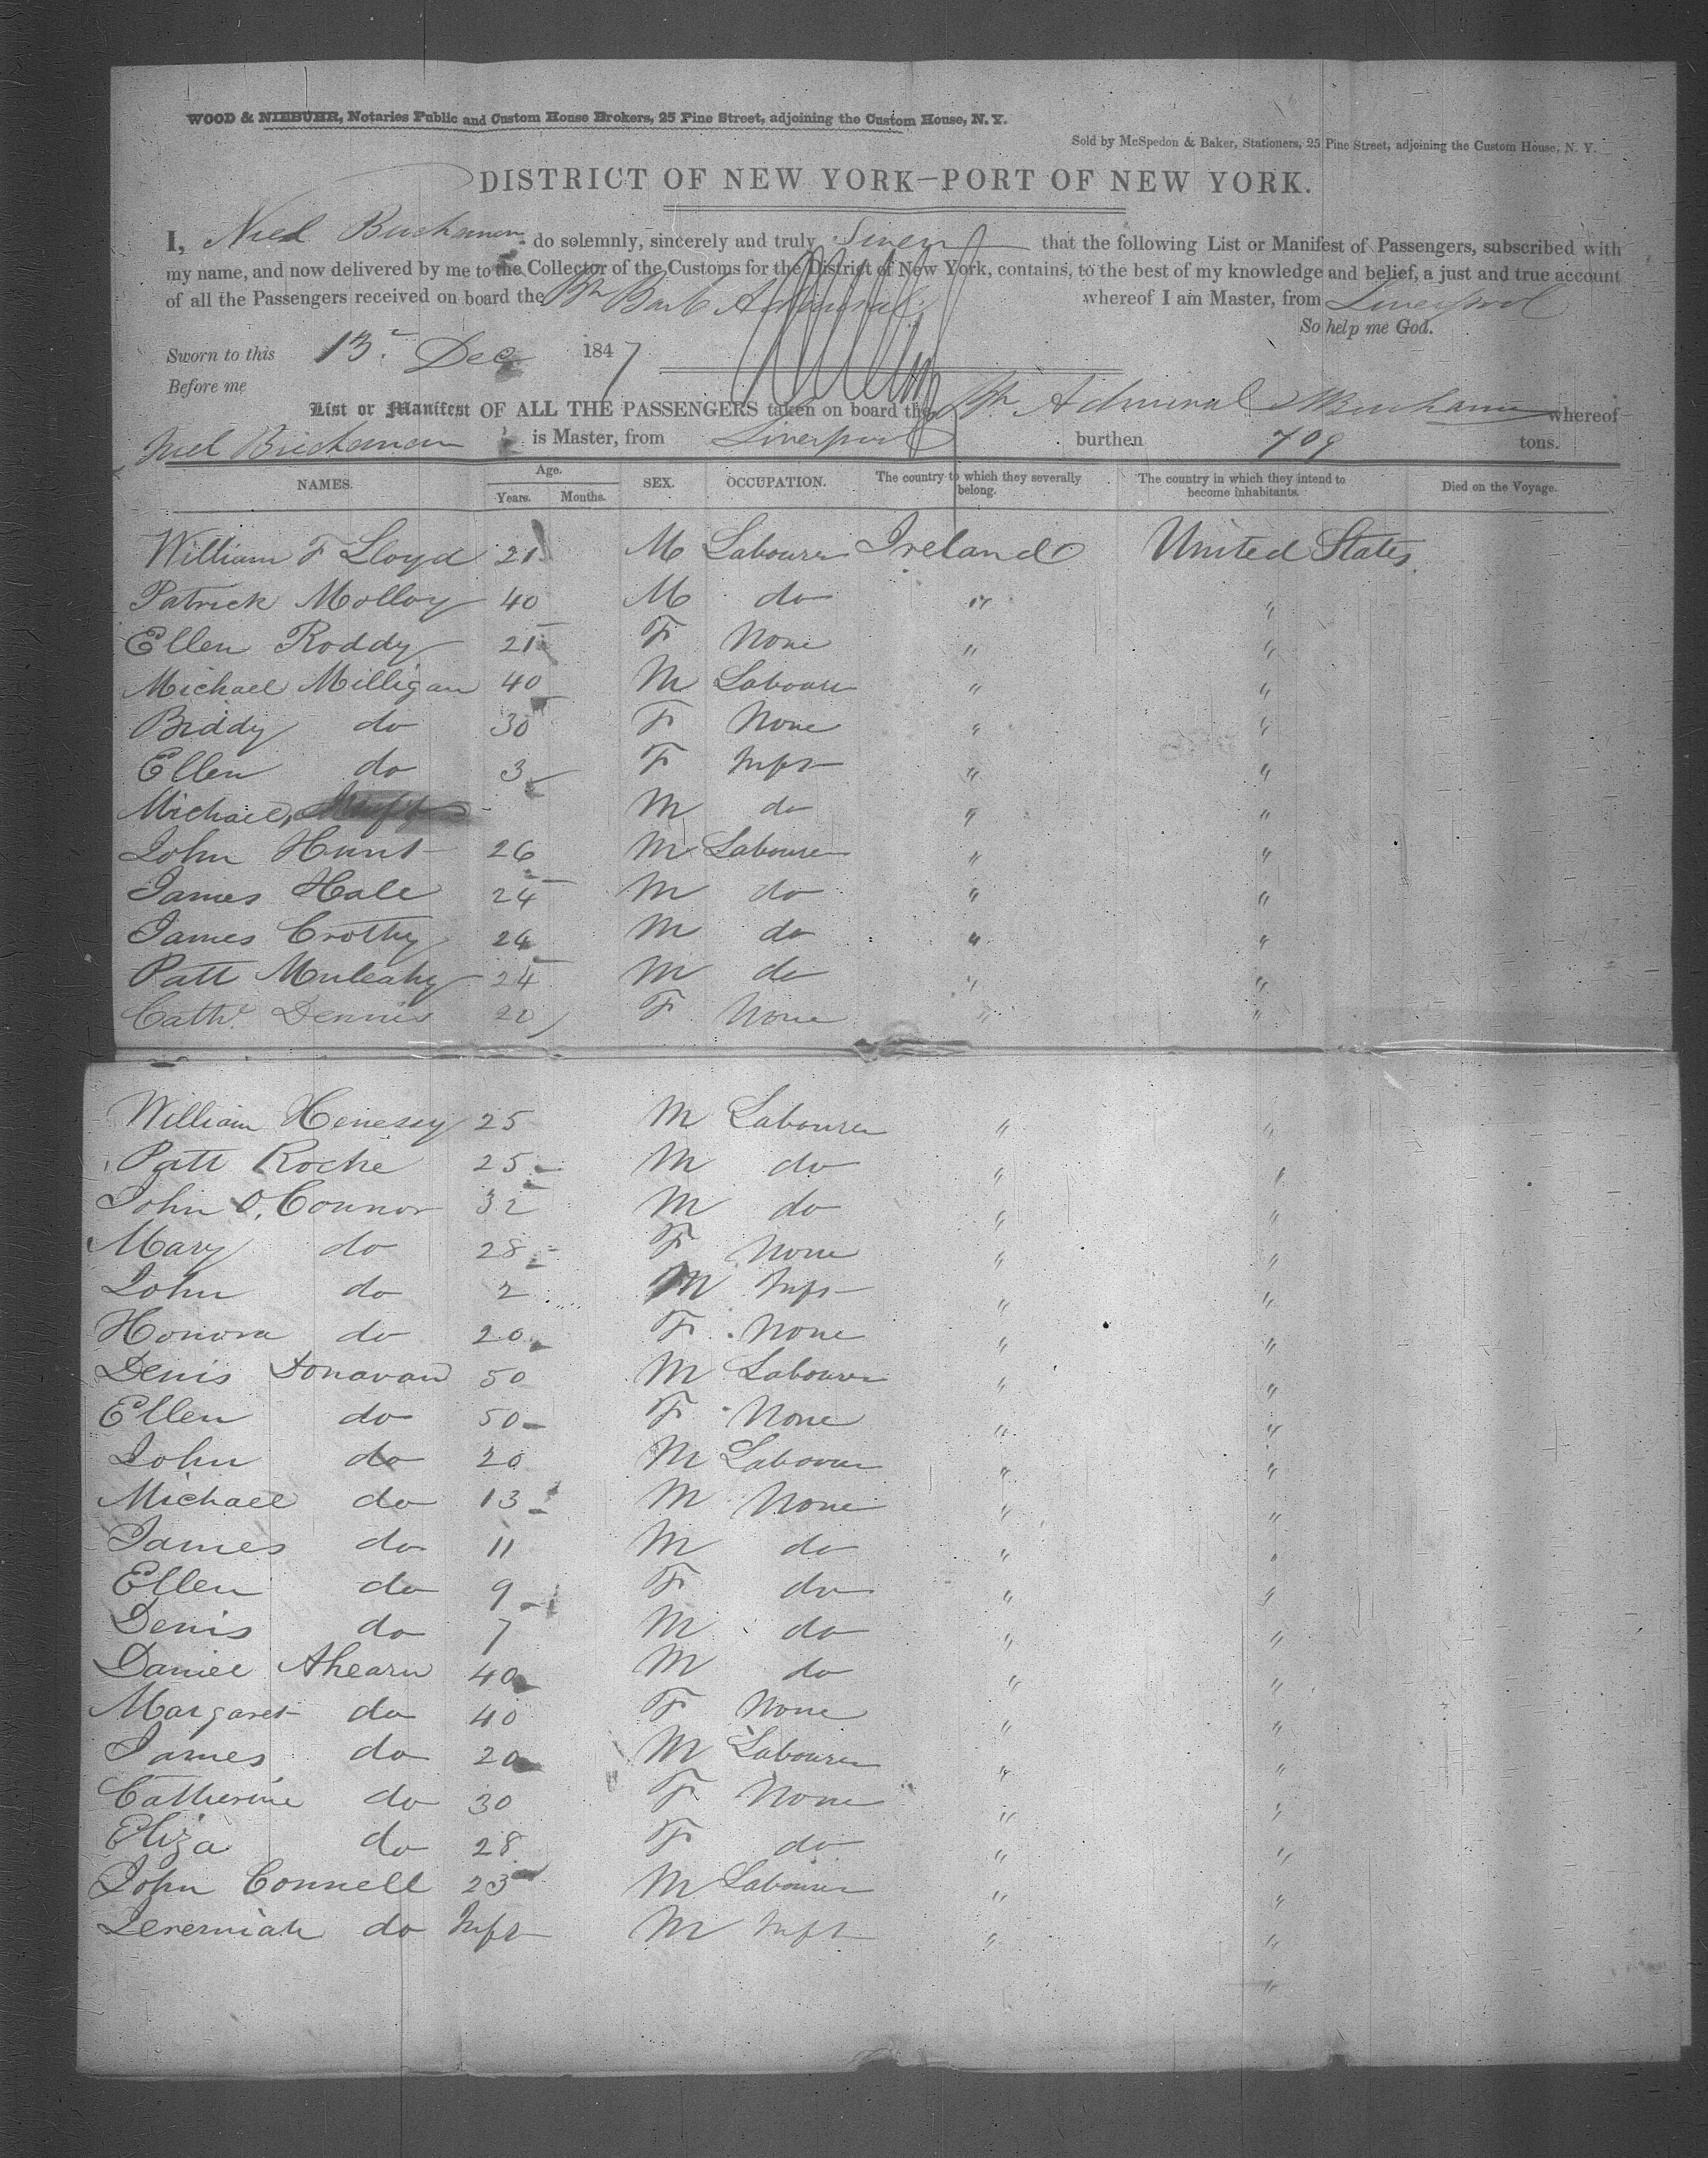 WOOD & NIEBUHR, Notaries Public and Custom House Brokers, 25 Pine Street, adjoining the Custom House, N. Y.
Sold by McSpedon & Baker, Stationers, 25 Pine Street, adjoining the Custom House, N. Y.
DISTRICT OF NEW YORK—PORT OF NEW YORK.
I, Niel Buchanan do solemnly, sincerely and truly Swear that the following List or Manifest of Passengers, subscribed with
my name, and now delivered by me to the Collector of the Customs for the District of New York, contains, to the best of my knowledge and belief, a just and true account
of all the Passengers received on board the Bh Bark Admiral whereof I am Master, from Liverpool
So help me God.
Sworn to this 13 Dec 1847
Before me
List or Manifest OF ALL THE PASSENGERS taken on board the Bh Admiral whereof
Niel Buchanan is Master, from Liverpool burthen 709 tons.
NAMES. Age. Years. Months. SEX. OCCUPATION. The country to which they severally belong. The country in which they intend to become inhabitants. Died on the Voyage.
William F Lloyd 21 M Labourer Ireland United States
Patrick Molloy 40 M do " "
Ellen Roddy 21 F None " "
Michael Milligan 40 M Labourer " "
Biddy do 30 F None " "
Ellen do 3 F Inft " "
Michael, M do " "
John Hunt 26 M Labourer " "
James Hale 24 M do " "
James Crothy 24 M do " "
Patt Mulcahy 24 M do " "
Cathe. Dennis 20 F None " "
William Henessy 25 M Labourer " "
Patt Roche 25 M do " "
John O,Connor 32 M do " "
Mary do 28 F None " "
John do 2 M Inft " "
Honora do 20 F None " "
Denis Donavan 50 M Labourer " "
Ellen do 50 F None " "
John do 20 M Labourer " "
Michael do 13 M None " "
James do 11 M do " "
Ellen do 9 F do " "
Denis do 7 M do " "
Daniel Ahearn 40 M do " "
Margaret do 40 F None " "
James do 20 M Labourer " "
Catherine do 30 F None " "
Eliza do 28 F do " "
John Connell 23 M Labourer " "
Jeremiah do Inft M Inft " "
"